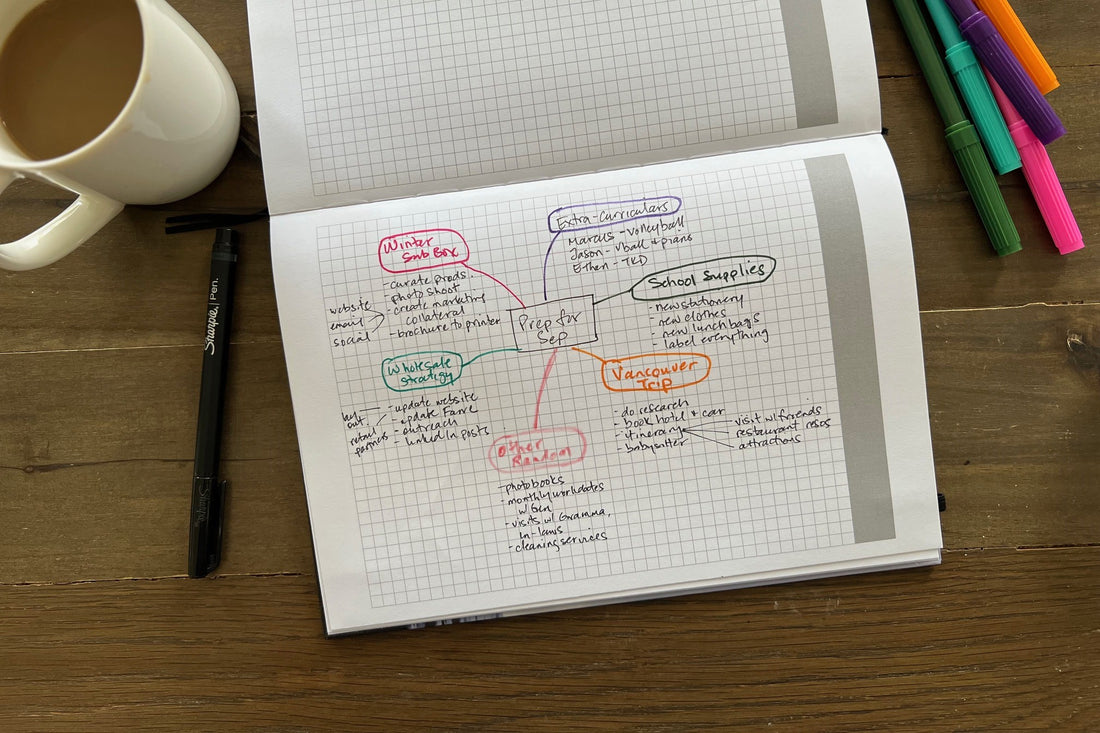 Sharpie. Pen.
Sharpie
Prep for
Sep
Extra-Curriculars
Marcus - volleyball
Jason - vball + piano
Ethan - TKD
School Supplies
- new stationery
- new clothes
- new lunch bags
- label everything
Vancouver
Trip
- do research
- book hotel + car
- itinerary
- babysitter
visit w/ friends
restaurant resos
attractions
Other
Random
- photobooks
- monthly workdates
w/ Gen
- visits w/ Gramma,
in-laws
- cleaning services
Wholesale
Strategy
- update website
- update Faire
- outreach
- LinkedIn posts
buy
out
retail
partners
Winter
Sub Box
- curate prods.
- photo shoot
- create marketing
collateral
- brochure to printer
website
email
social